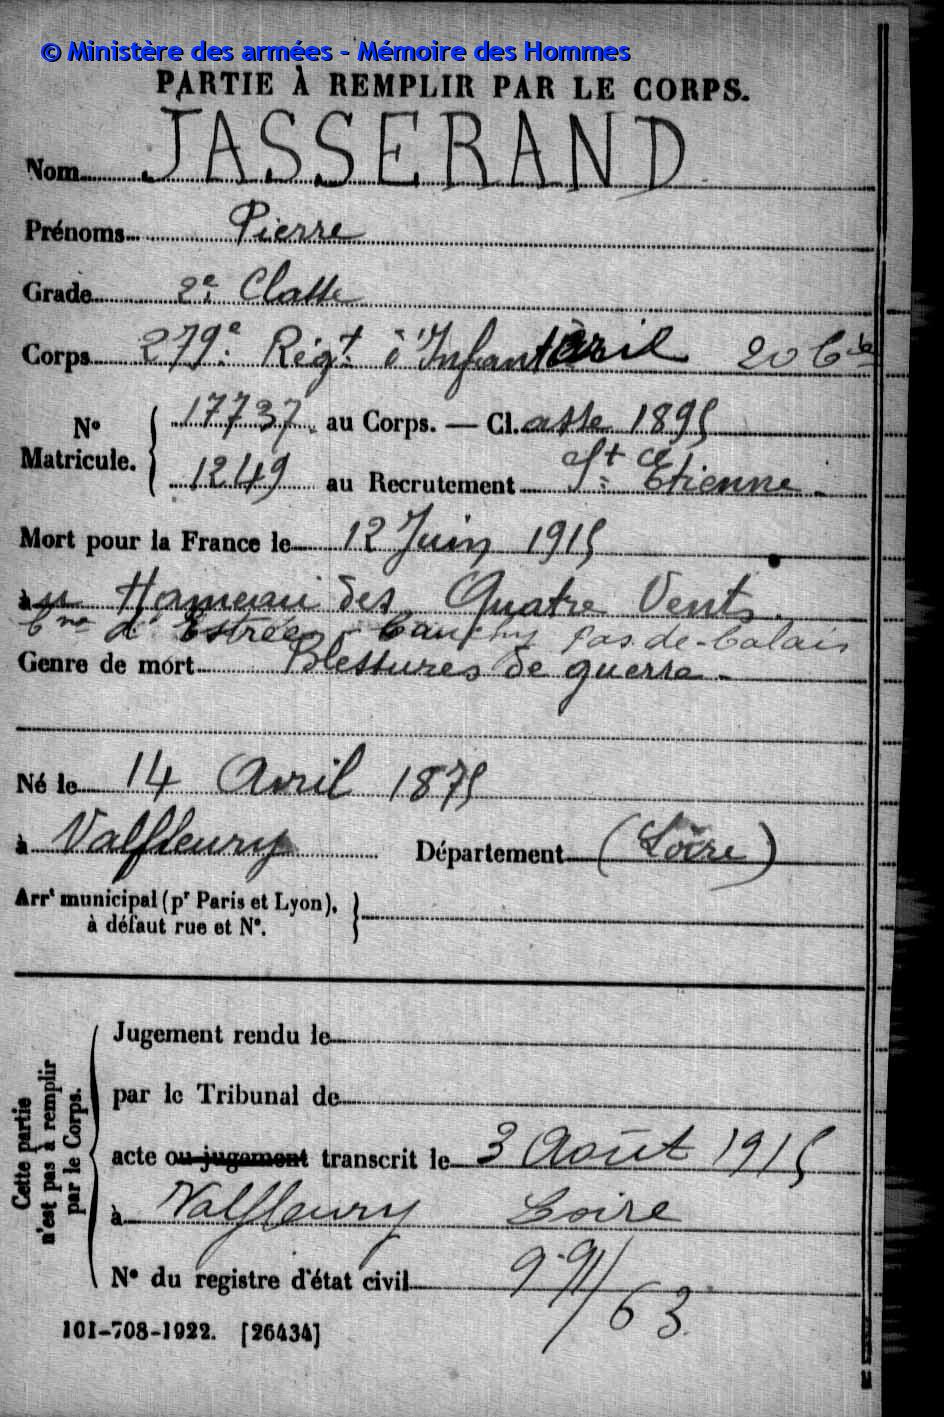 © Ministère des armées - Mémoire des Hommes
PARTIE À REMPLIR PAR LE CORPS.
Nom JASSERAND
Prénoms Pierre
Grade 2e Classe
Corps 279e Régt d'Infanterie 20 Cie
No Matricule. 17737 au Corps. — Cl.asse 1895
1249 au Recrutement St Etienne
Mort pour la France le 12 Juin 1915
au Hameau des Quatre Vents
Cne d'Estrée-Cauchy Pas-de-Calais
Genre de mort Blessures de guerre
Né le 14 Avril 1875
à Valfleury Département (Loire)
Arrt municipal (pr Paris et Lyon),
à défaut rue et No.
Cette partie n'est pas à remplir par le Corps.
Jugement rendu le
par le Tribunal de
acte ou jugement transcrit le 3 Août 1915
à Valfleury Loire
No du registre d'état civil
63
101-708-1922. [26434]